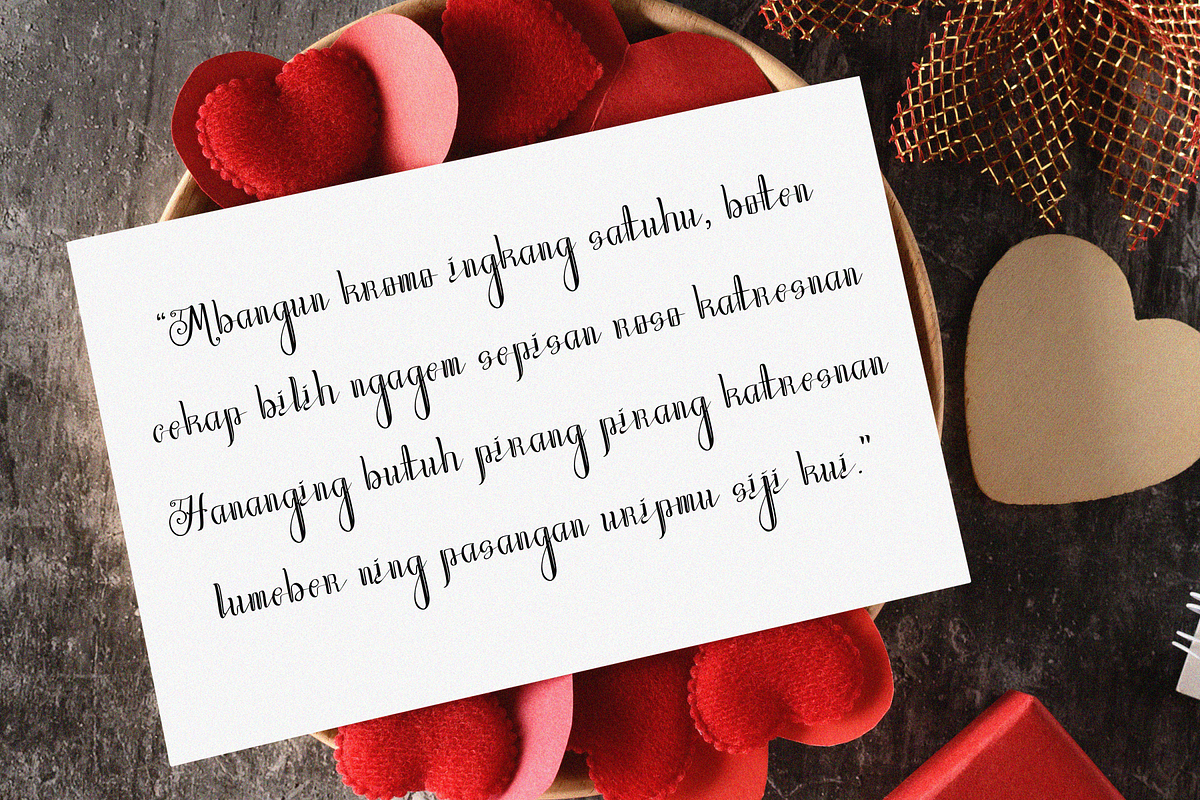 “Mbangun kromo ingkang satuhu, boten
cekap bilih ngagem sepisan roso katresnan
Hananging butuh pirang pirang katresnan
lumeber ning pasangan uripmu siji kui.”